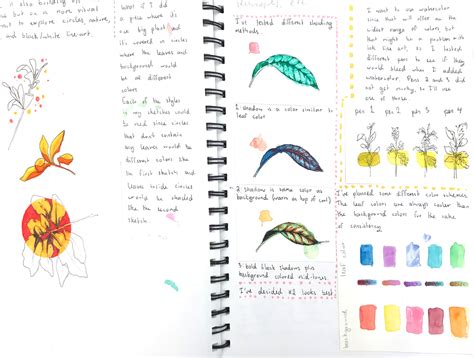 it also building off
but is a more visual
explore circles, nature,
and black/white line art.
What if I did
a piece where its
one big plant and
it's covered in circles
where the leaves and
background would
be all different
colors
Each of the styles
in my sketches could
be used since circles
that don't contain
any leaves would be
different colors like
the first sketch and
leaves inside circles
would be shaded
like the second
sketch.
I've tested different shading
methods.
1 shadow is a color similar to
leaf color
2 shadow is same color as
background (drawn on top of leaf)
3. bold black shadows plus
background colored mid-tones
I've decided #2 looks best.
I want to use watercolor
since that will offer me the
widest range of colors but
that might be a problem with
ink line art, so I tested
different pens to see if they
would bleed when I added
watercolor. Pens 2 and 3 did
not get murky, so I'll use
one of those.
pen 1 pen 2 pen 3 pen 4
I've planned some different color schemes
The leaf colors are always cooler than
the background colors for the sake
of consistency.
leaf color
background